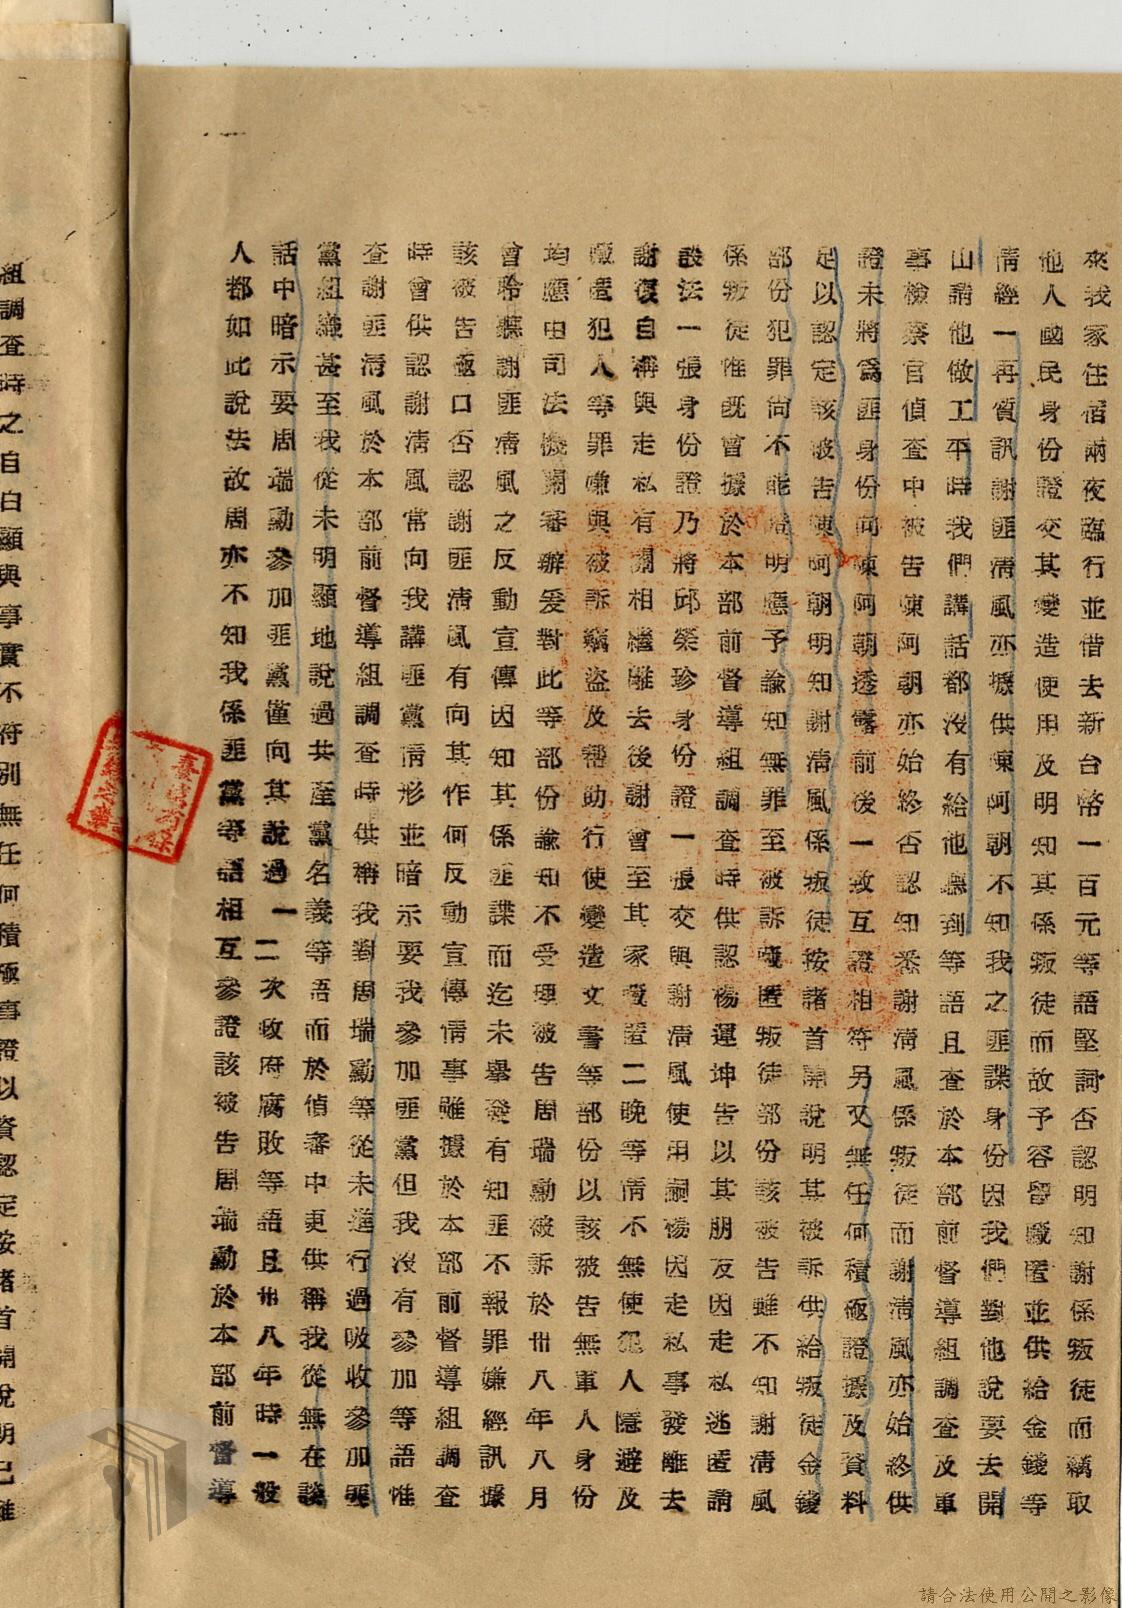 來我家住宿兩夜臨行並借去新台幣一百元等語堅詞否認明知謝係叛徒而竊取
他人國民身份證交其變造使用及明知其係叛徒而故予容留藏匿並供給金錢等
情經一再質訊謝匪淸風亦堅供陳阿朝不知我之匪諜身份因我們對他說要去開
山請他做工平時我們講話都沒有給他聽到等語且查於本部前督導組調查及軍
事檢察官偵查中被告陳阿朝亦始終否認知悉謝淸風係叛徒而謝淸風亦始終供
證未將爲匪身份向陳阿朝透露前後一致互證相符另又無任何積極證據及資料
足以認定該被告陳阿朝明知謝淸風係叛徒按諸首開說明其被訴供給叛徒金錢
部份犯罪尙不能證明應予諭知無罪至被訴藏匿叛徒部份該被告雖不知謝淸風
係叛徒惟既曾據於本部前督導組調查時供認楊運坤告以其朋友因走私逃匿請
設法一張身份證乃將邱榮珍身份證一張交與謝淸風使用嗣楊因走私事發離去
謝復自稱與走私有關相繼離去後謝曾至其家藏匿二晚等情不無使犯人隱避及
藏匿犯人等罪嫌與被訴竊盜及幫助行使變造文書等部份以該被告無軍人身份
均應由司法機關審辦爰對此等部份諭知不受理被告周瑞勳被訴於卅八年八月
曾聆聽謝匪淸風之反動宣傳因知其係匪諜而迄未舉發有知匪不報罪嫌經訊據
該被告極口否認謝匪淸風有向其作何反動宣傳情事雖據於本部前督導組調查
時曾供認謝淸風常向我講匪黨情形並暗示要我參加匪黨但我沒有參加等語惟
查謝匪淸風於本部前督導組調查時供稱我對周瑞勳等從未進行過吸收參加匪
黨組織甚至我從未明顯地說過共產黨名義等語而於偵審中更供稱我從無在談
話中暗示要周瑞勳參加匪黨僅向其說過一二次政府腐敗等語且卅八年時一般
人都如此說法故周亦不知我係匪黨等語相互參證該被告周瑞勳於本部前督導
組調查時之自白顯與事實不符別無任何積極事證以資認定按諸首開說明已難
請合法使用公開之影像